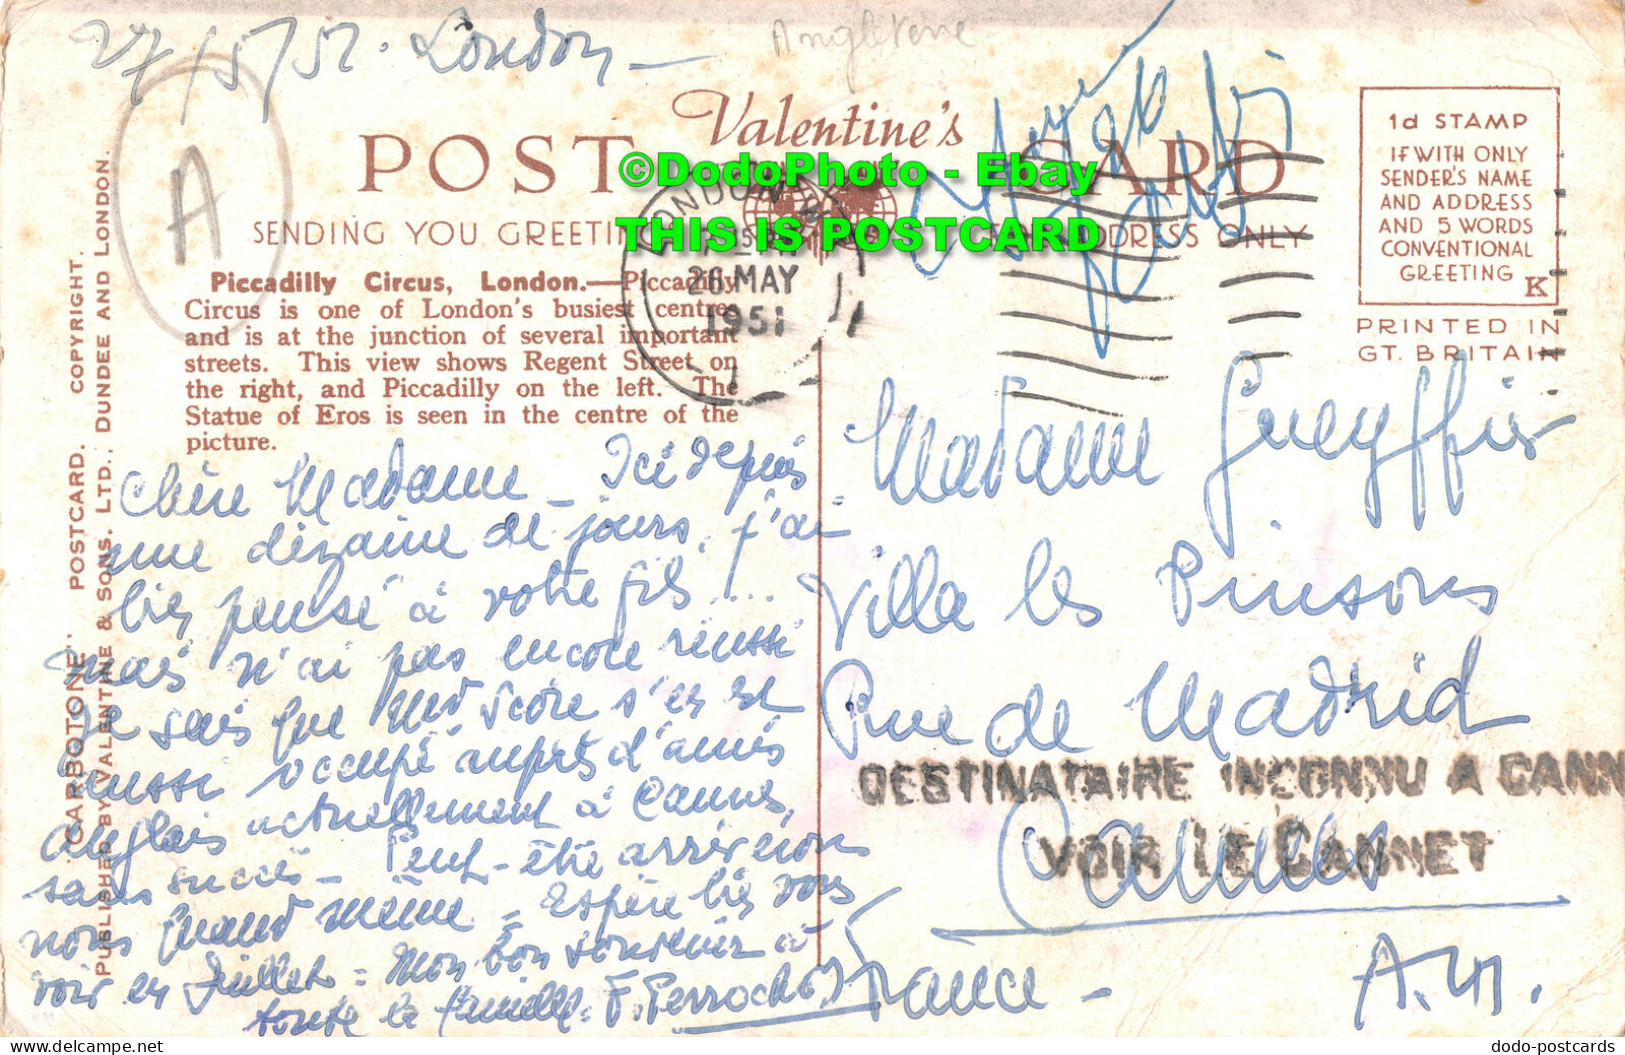 27/5/51. London
Angleterre
A
Valentine's
POST CARD
SENDING YOU GREETIN
ADDRESS ONLY
©DodoPhoto - Ebay
THIS IS POSTCARD
LONDON
26 MAY
1951
1d STAMP
IF WITH ONLY
SENDER'S NAME
AND ADDRESS
AND 5 WORDS
CONVENTIONAL
GREETING
K
PRINTED IN
GT. BRITAIN
Piccadilly Circus, London.—Piccadilly
Circus is one of London's busiest centres
and is at the junction of several important
streets. This view shows Regent Street on
the right, and Piccadilly on the left. The
Statue of Eros is seen in the centre of the
picture.
"CARBOTONE" POSTCARD. COPYRIGHT.
PUBLISHED BY VALENTINE & SONS, LTD., DUNDEE AND LONDON.
Chère Madame _ Ici depuis
une dizaine de jours, j'ai
bien pensé à votre fils ....
mais n'ai pas encore réussi
Je sais que s'est
aussi occupé auprès d'amis
anglais actuellement à Cannes,
sans succès _ Peut-être arriverons
nous quand même _ Espère bien vous
voir en Juillet = Mon bon souvenir à
toute la famille. F. Perrochet
Madame Gueyffier
Villa les Pinsons
Rue de Madrid
Cannes
France - A.M.
DESTINATAIRE INCONNU A CANN
VOIR LE CANNET
dodo-postcards